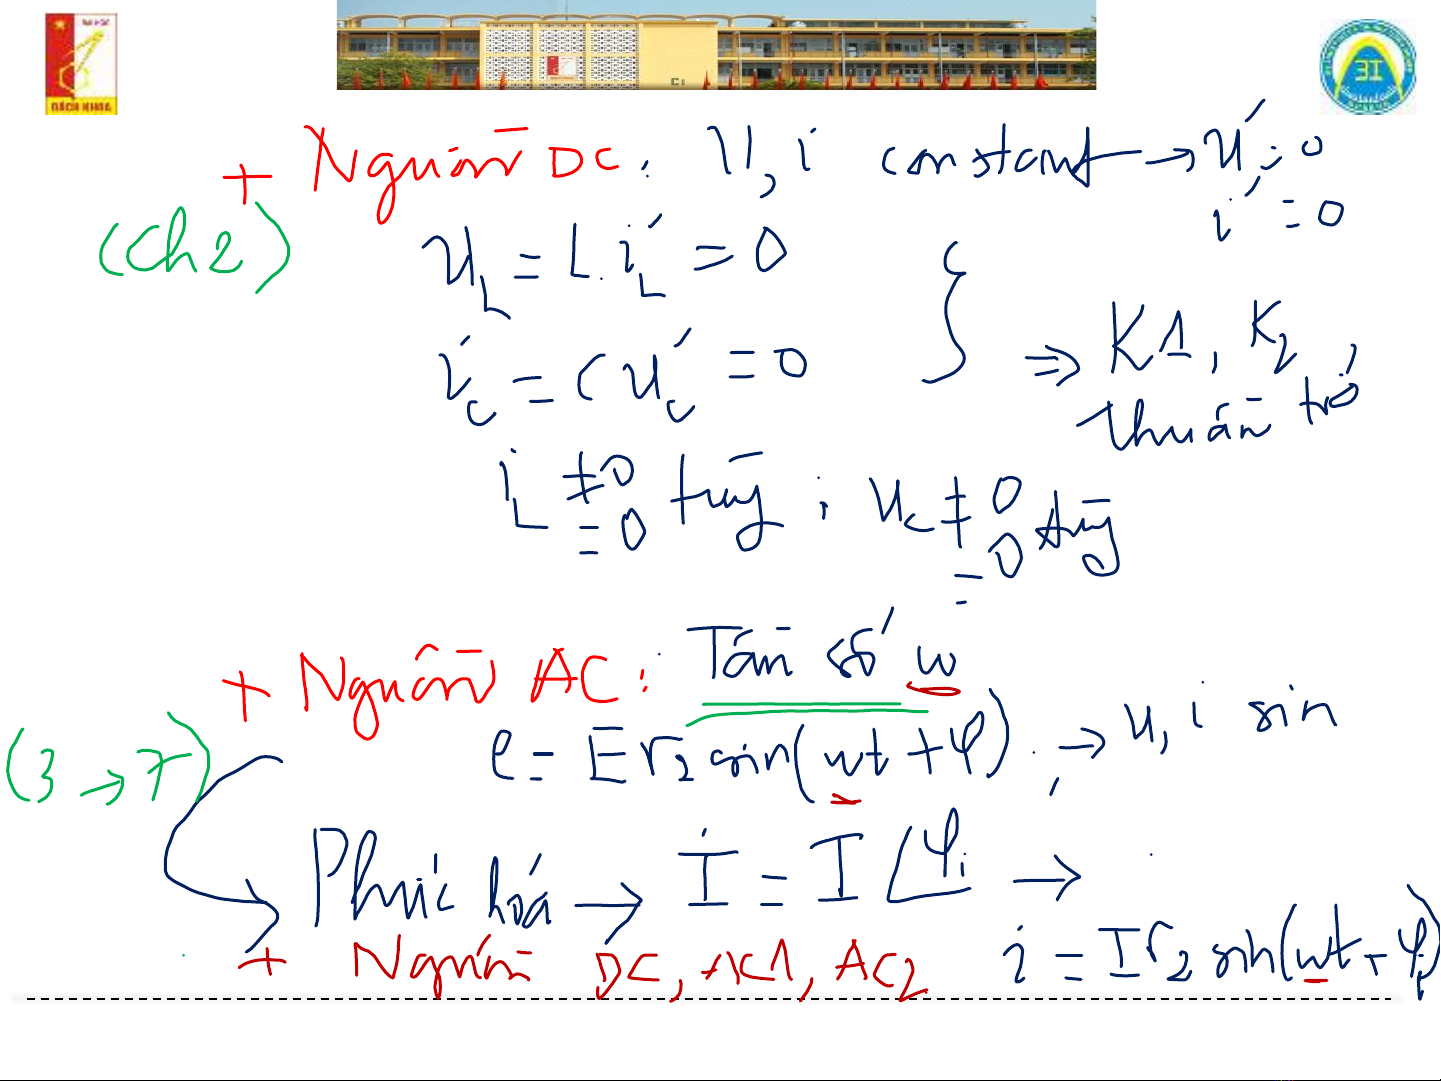 BÁCH KHOA
3I
+ Nguồn DC: u, i constant → u' = 0
i' = 0
(Ch2)
u_L = L.i'_L = 0
i_C = C u'_C = 0 } ⇒ K1, K2,
thuần trở
i_L ≠ 0 tuỳ ; u_C ≠ 0 tuỳ
= 0
= 0
+ Nguồn AC: Tần số w
(3 → 7)
e = E√2 sin(wt + φ) → u, i sin
Phức hoá → İ = I ∠φi →
i = I√2 sin(wt + φi)
+ Nguồn DC, AC1, AC2